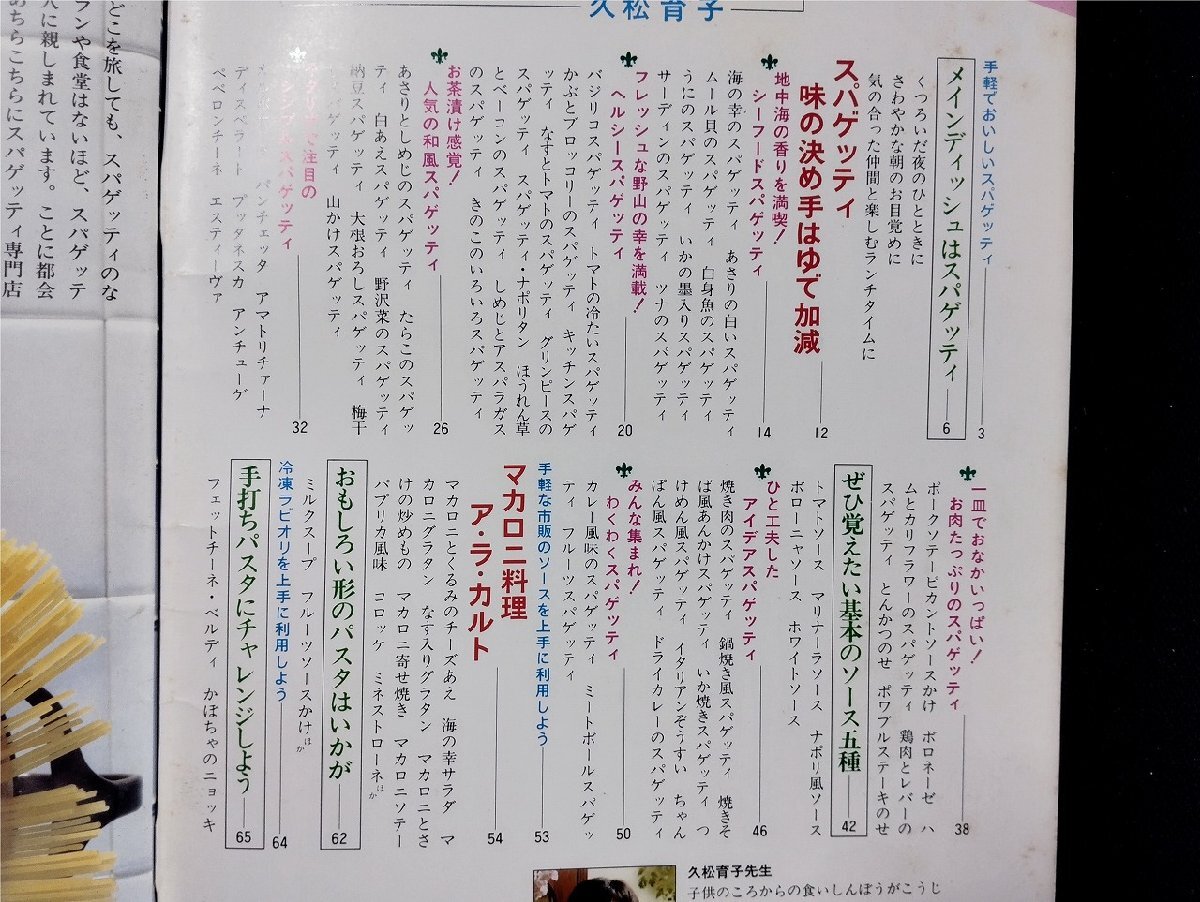 久松育子
手軽でおいしいスパゲッティ 3
メインディッシュはスパゲッティ 6
くつろいだ夜のひとときに
さわやかな朝のお目覚めに
気の合った仲間と楽しむランチタイムに
スパゲッティ
味の決め手はゆで加減 12
地中海の香りを満喫!
シーフードスパゲッティ 14
海の幸のスパゲッティ あさりの白いスパゲッティ
ムール貝のスパゲッティ 白身魚のスパゲッティ
うにのスパゲッティ いかの墨入りスパゲッティ
サーディンのスパゲッティ ツナのスパゲッティ
フレッシュな野山の幸を満載!
ヘルシースパゲッティ 20
バジリコスパゲッティ トマトの冷たいスパゲッティ
かぶとブロッコリーのスパゲッティ キッチンスパゲ
ッティ なすとトマトのスパゲッティ グリンピースの
スパゲッティ スパゲッティ・ナポリタン ほうれん草
とベーコンのスパゲッティ しめじとアスパラガス
のスパゲッティ きのこのいろいろスパゲッティ
お茶漬け感覚!
人気の和風スパゲッティ 26
あさりとしめじのスパゲッティ たらこのスパゲッ
ティ 白あえスパゲッティ 野沢菜のスパゲッティ
納豆スパゲッティ 大根おろしスパゲッティ 梅干
スパゲッティ 山かけスパゲッティ
注目の
スパゲッティ 32
パンチェッタ アマトリチァーナ
ディスペラート プッタネスカ アンチューゲ
ペペロンチーネ エスティーヴァ
一皿でおなかいっぱい!
お肉たっぷりのスパゲッティ 38
ポークソテーピカントソースかけ ボロネーゼ ハ
ムとカリフラワーのスパゲッティ 鶏肉とレバーの
スパゲッティ とんかつのせ ポワブルステーキのせ
ぜひ覚えたい基本のソース・五種 42
トマトソース マリナーラソース ナポリ風ソース
ボローニャソース ホワイトソース
ひと工夫した
アイデアスパゲッティ 46
焼き肉のスパゲッティ 鍋焼き風スパゲッティ 焼きそ
ば風あんかけスパゲッティ いか焼きスパゲッティ つ
けめん風スパゲッティ イタリアンぞうすい ちゃん
ぽん風スパゲッティ ドライカレーのスパゲッティ
みんな集まれ!
わくわくスパゲッティ 50
カレー風味のスパゲッティ ミートボールスパゲッ
ティ フルーツスパゲッティ
手軽な市販のソースを上手に利用しよう 53
マカロニ料理
ア・ラ・カルト 54
マカロニとくるみのチーズあえ 海の幸サラダ マ
カロニグラタン なす入りグラタン マカロニとさ
けの炒めもの マカロニ寄せ焼き マカロニソテー
パプリカ風味 コロッケ ミネストローネほか
おもしろい形のパスタはいかが 62
ミルクスープ フルーツソースかけほか
冷凍ラビオリを上手に利用しよう 64
手打ちパスタにチャレンジしよう 65
フェットチーネ・ベルティ かぼちゃのニョッキ
久松育子先生
子供のころからの食いしんぼうがこうじ
どこを旅しても、スパゲッティのな
ランや食堂はないほど、スパゲッテ
人に親しまれています。ことに都会
あちらこちらにスパゲッティ専門店